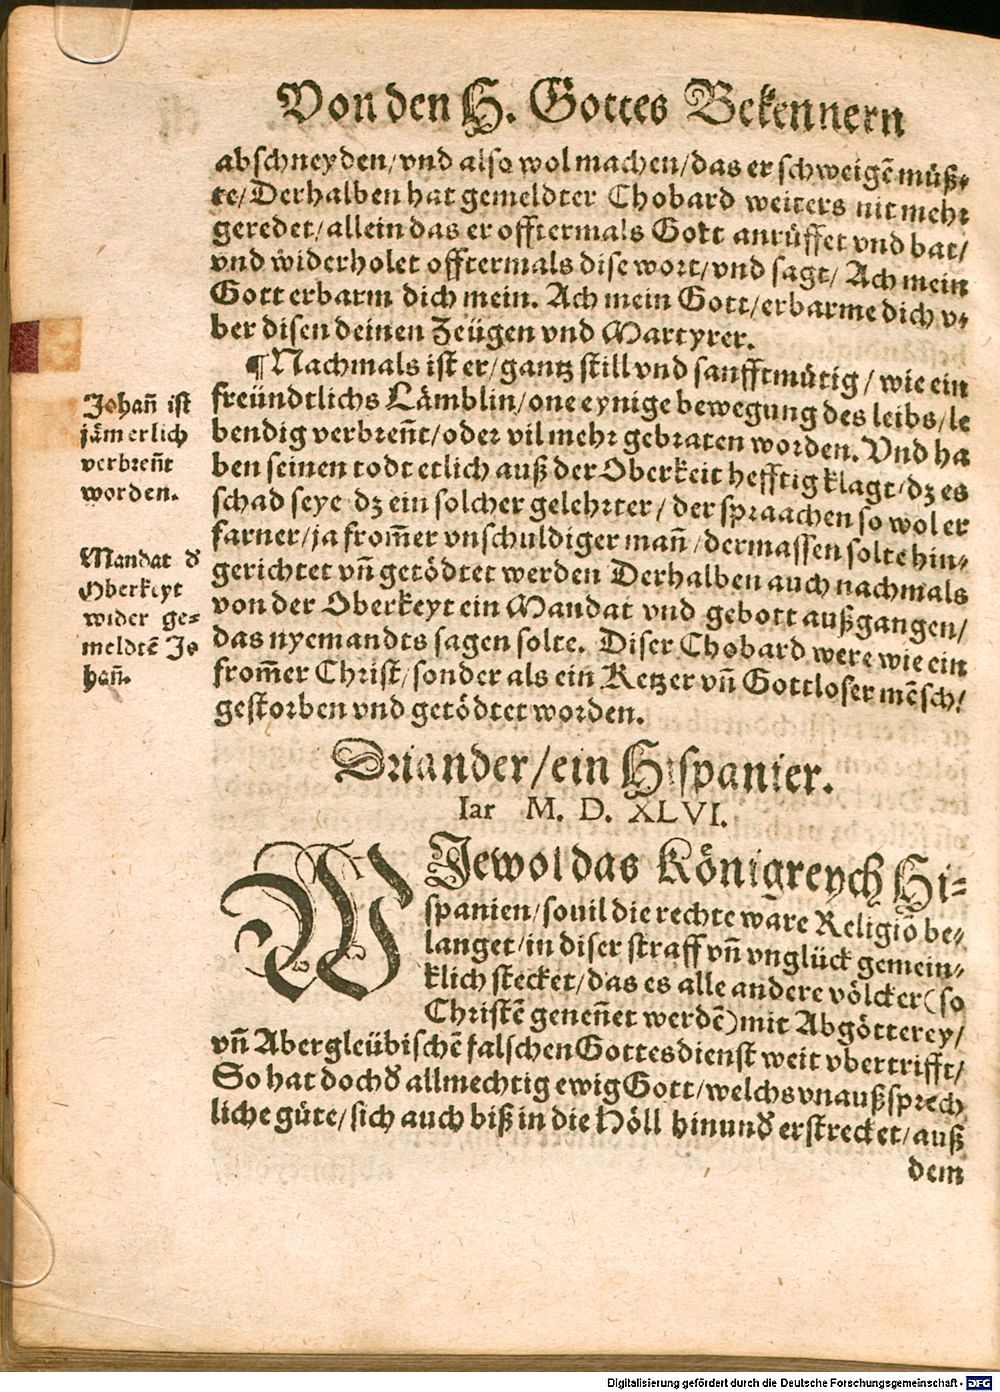 Von den H. Gottes Bekennern
abschneyden/vnd also wol machen/das er schweigẽ müß⸗
te/Derhalben hat gemeldter Chobard weiters nit mehr
geredet/allein das er offtermals Gott anrüffet vnd bat/
vnd widerholet offtermals dise wort/vnd sagt/Ach mein
Gott erbarm dich mein. Ach mein Gott/erbarme dich v⸗
ber disen deinen Zeügen vnd Martyrer.
¶Nachmals ist er/gantz still vnd sanfftmütig/wie ein
freündtlichs Lämblin/one eynige bewegung des leibs/le
bendig verbreñt/oder vil mehr gebraten worden. Vnd ha
ben seinen todt etlich auß der Oberkeit hefftig klagt/dz es
schad seye dz ein solcher gelehrter/der spraachen so wol er
farner/ja from̃er vnschuldiger mañ/dermassen solte hin⸗
gerichtet vñ getödtet werden Derhalben auch nachmals
von der Oberkeyt ein Mandat vnd gebott außgangen/
das nyemandts sagen solte. Diser Chobard were wie ein
from̃er Christ/sonder als ein Ketzer vñ Gottloser mẽsch/
gestorben vnd getödtet worden.
Johañ ist
jämerlich
verbreñt
worden.
Mandat đ
Oberkeyt
wider ge⸗
meldtẽ Jo
hañ.
Driander/ein Hispanier.
Iar M. D. XLVI.
WJewol das Königreych Hi⸗
spanien/souil die rechte ware Religiõ be⸗
langet/in diser straff vñ vnglück gemein⸗
klich stecket/das es alle andere völcker(so
Christẽ geneñet werdẽ)mit Abgötterey/
vñ Abergleübischẽ falschen Gottesdienst weit vbertrifft/
So hat doch đ allmechtig ewig Gott/welchs vnaußsprech
liche güte/sich auch biß in die Höll hinunđ erstrecket/auß
dem
Digitalisierung gefördert durch die Deutsche Forschungsgemeinschaft - DFG